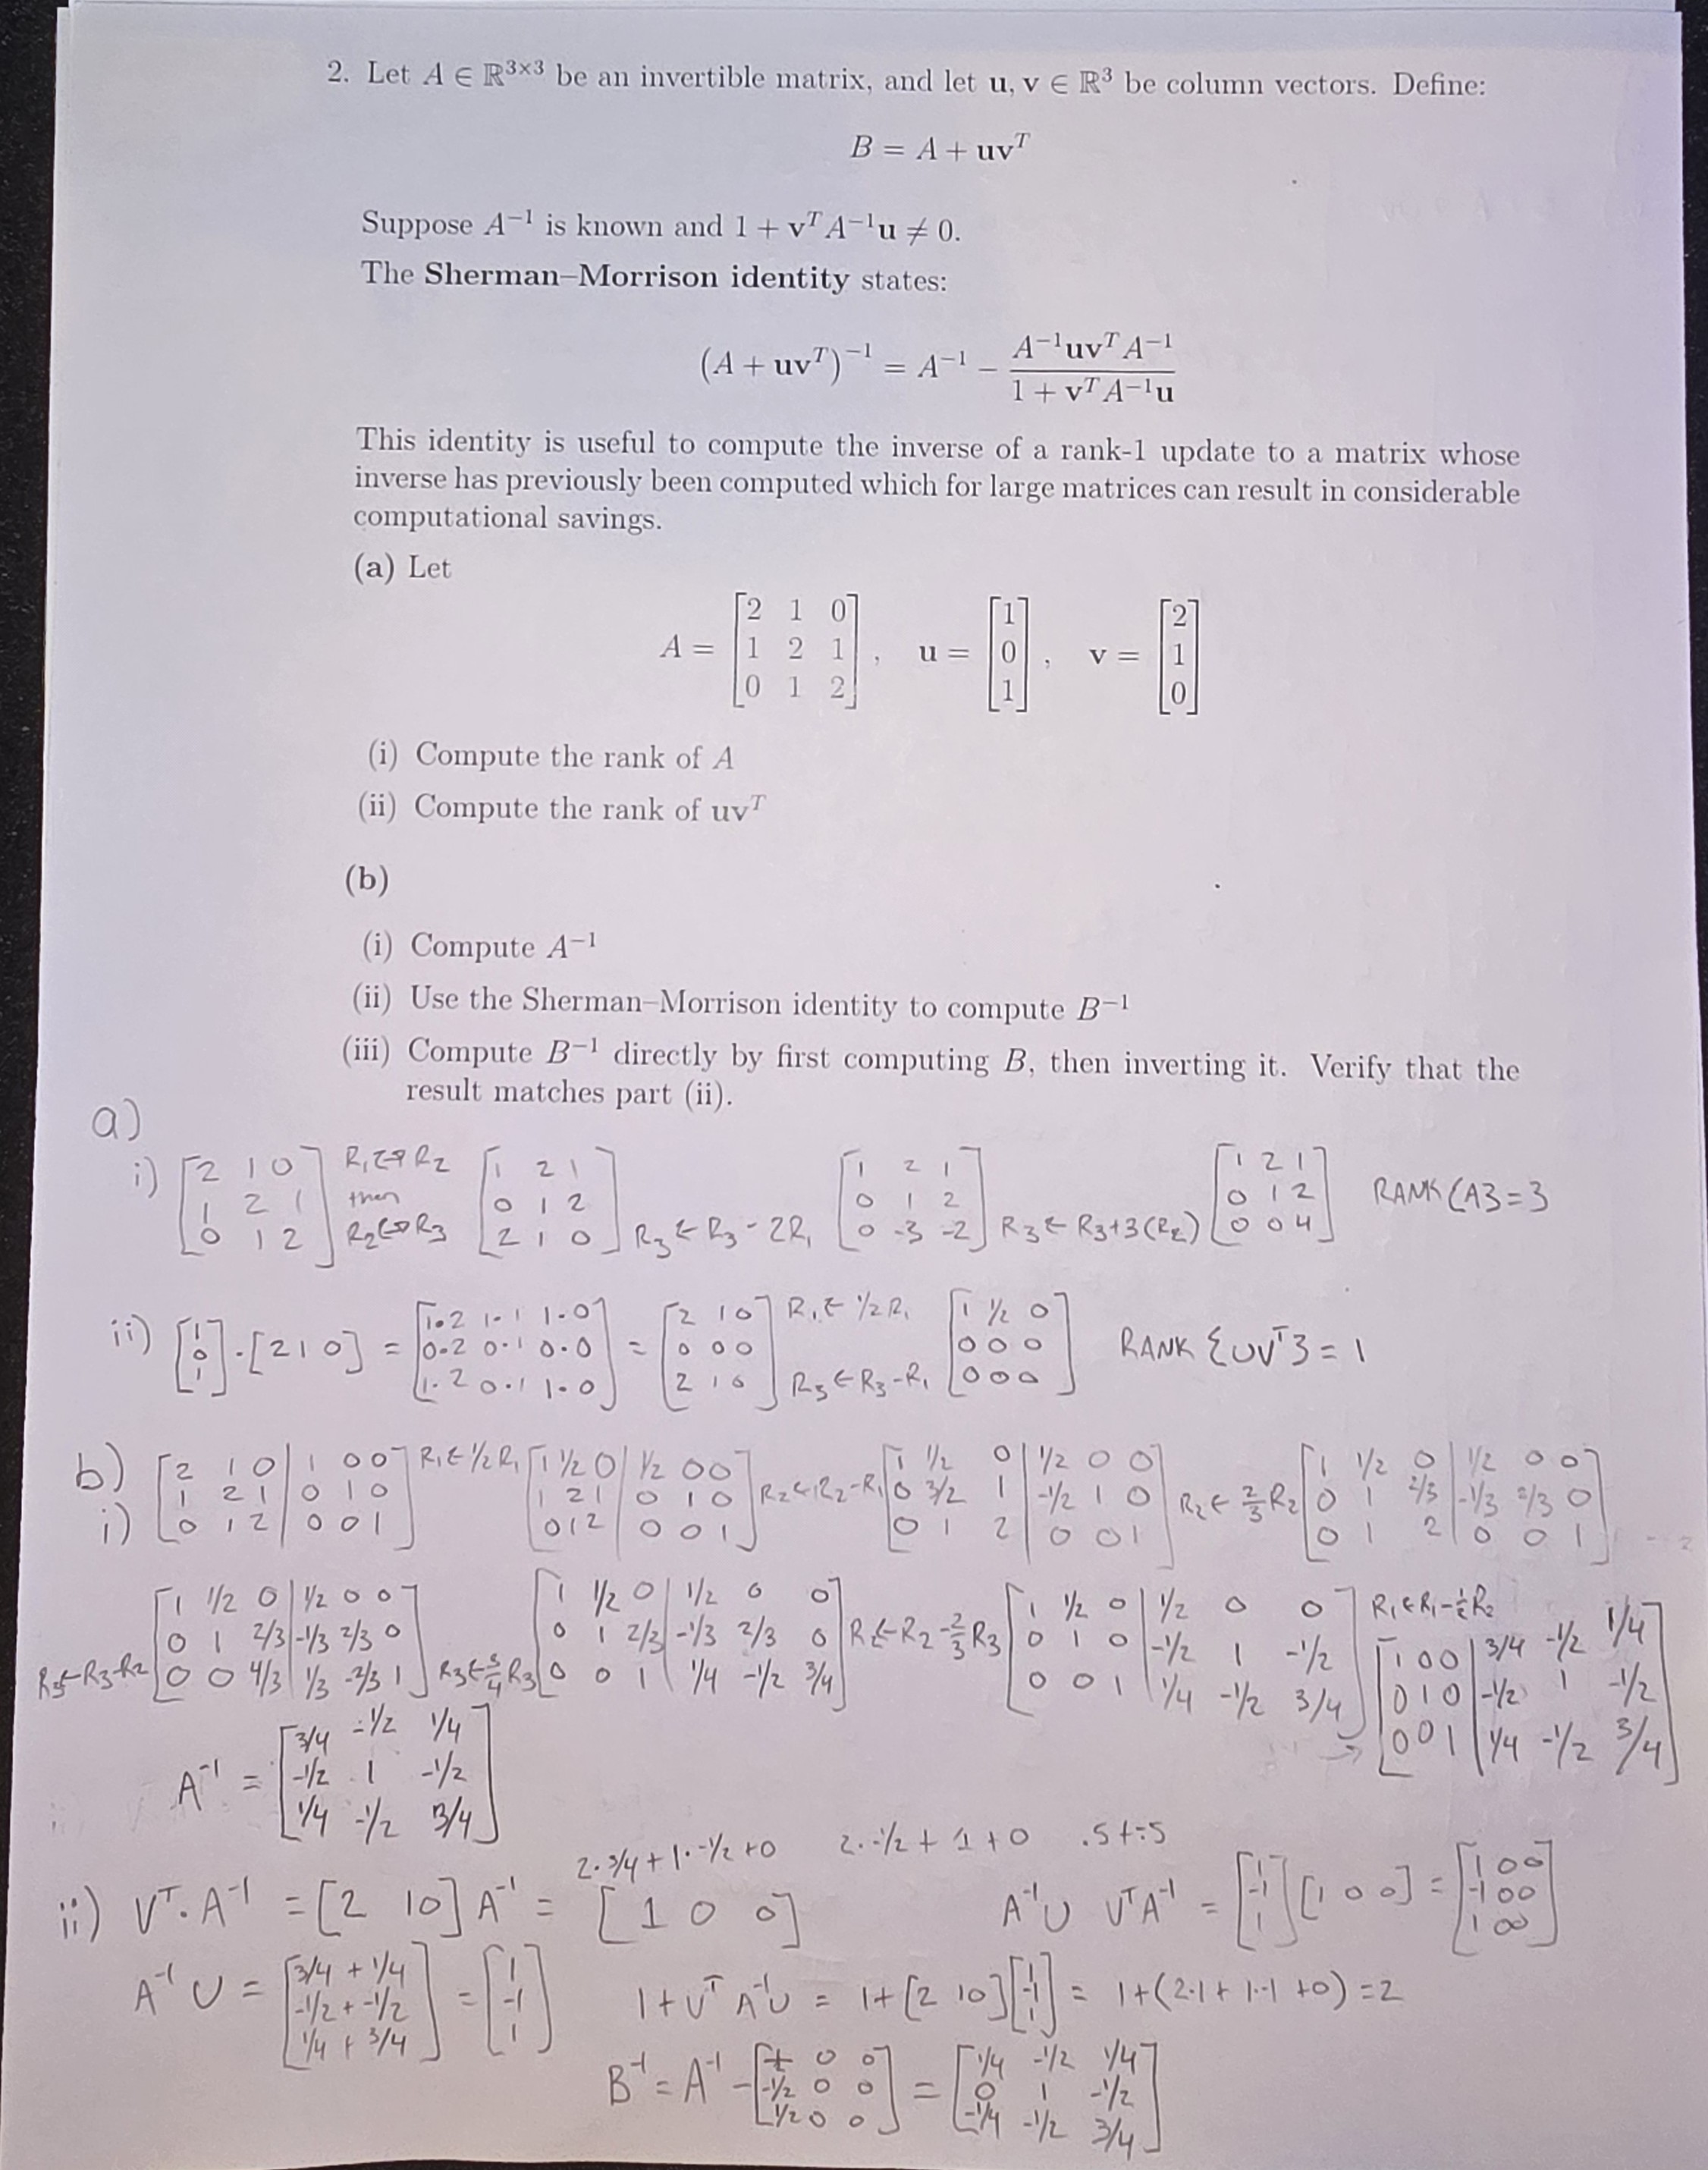 2. Let A ∈ ℝ³ˣ³ be an invertible matrix, and let u, v ∈ ℝ³ be column vectors. Define:
B = A + uvᵀ
Suppose A⁻¹ is known and 1 + vᵀA⁻¹u ≠ 0.
The Sherman–Morrison identity states:
(A + uvᵀ)⁻¹ = A⁻¹ − (A⁻¹uvᵀA⁻¹)/(1 + vᵀA⁻¹u)
This identity is useful to compute the inverse of a rank-1 update to a matrix whose
inverse has previously been computed which for large matrices can result in considerable
computational savings.
(a) Let
A = [2 1 0; 1 2 1; 0 1 2], u = [1; 0; 1], v = [2; 1; 0]
(i) Compute the rank of A
(ii) Compute the rank of uvᵀ
(b)
(i) Compute A⁻¹
(ii) Use the Sherman–Morrison identity to compute B⁻¹
(iii) Compute B⁻¹ directly by first computing B, then inverting it. Verify that the
result matches part (ii).
a)
i) [2 1 0; 1 2 1; 0 1 2] R₁↔R₂ then R₂↔R₃ [1 2 1; 0 1 2; 2 1 0] R₃←R₃-2R₁ [1 2 1; 0 1 2; 0 -3 -2] R₃←R₃+3(R₂) [1 2 1; 0 1 2; 0 0 4] RANK{A} = 3
ii) [1; 0; 1]·[2 1 0] = [1·2 1·1 1·0; 0·2 0·1 0·0; 1·2 0·1 1·0] = [2 1 0; 0 0 0; 2 1 0] R₁←1/2R₁ R₃←R₃-R₁ [1 1/2 0; 0 0 0; 0 0 0] RANK{UVᵀ} = 1
b)
i) [2 1 0 | 1 0 0; 1 2 1 | 0 1 0; 0 1 2 | 0 0 1] R₁←1/2R₁ [1 1/2 0 | 1/2 0 0; 1 2 1 | 0 1 0; 0 1 2 | 0 0 1] R₂←R₂-R₁ [1 1/2 0 | 1/2 0 0; 0 3/2 1 | -1/2 1 0; 0 1 2 | 0 0 1] R₂←2/3R₂ [1 1/2 0 | 1/2 0 0; 0 1 2/3 | -1/3 2/3 0; 0 1 2 | 0 0 1]
R₃←R₃-R₂ [1 1/2 0 | 1/2 0 0; 0 1 2/3 | -1/3 2/3 0; 0 0 4/3 | 1/3 -2/3 1] R₃←3/4R₃ [1 1/2 0 | 1/2 0 0; 0 1 2/3 | -1/3 2/3 0; 0 0 1 | 1/4 -1/2 3/4] R₂←R₂-2/3R₃ [1 1/2 0 | 1/2 0 0; 0 1 0 | -1/2 1 -1/2; 0 0 1 | 1/4 -1/2 3/4] R₁←R₁-1/2R₂ → [1 0 0 | 3/4 -1/2 1/4; 0 1 0 | -1/2 1 -1/2; 0 0 1 | 1/4 -1/2 3/4]
A⁻¹ = [3/4 -1/2 1/4; -1/2 1 -1/2; 1/4 -1/2 3/4]
2·3/4 + 1·-1/2 + 0 2·-1/2 + 1 + 0 .5+-.5
ii) Vᵀ·A⁻¹ = [2 1 0] A⁻¹ = [1 0 0] A⁻¹U VᵀA⁻¹ = [1; -1; 1][1 0 0] = [1 0 0; -1 0 0; 1 0 0]
A⁻¹U = [3/4 + 1/4; -1/2 + -1/2; 1/4 + 3/4] = [1; -1; 1] 1+VᵀA⁻¹U = 1+[2 1 0][1; -1; 1] = 1+(2·1 + 1·-1 + 0) = 2
B⁻¹ = A⁻¹ - [½ 0 0; -1/2 0 0; 1/2 0 0] = [1/4 -1/2 1/4; 0 1 -1/2; -1/4 -1/2 3/4]